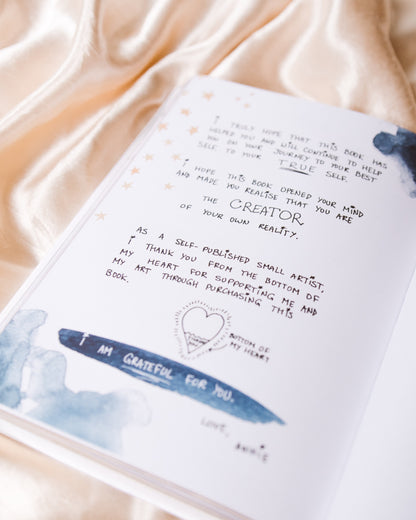 I TRULY HOPE THAT THIS BOOK HAS
HELPED YOU AND WILL CONTINUE TO HELP
YOU ON YOUR JOURNEY TO YOUR BEST
SELF TO YOUR TRUE SELF.
I HOPE THIS BOOK OPENED YOUR MIND
AND MADE YOU REALISE THAT YOU ARE
THE CREATOR
OF YOUR OWN REALITY.
AS A SELF-PUBLISHED SMALL ARTIST,
I THANK YOU FROM THE BOTTOM OF
MY HEART FOR SUPPORTING ME AND
MY ART THROUGH PURCHASING THIS
BOOK.
BOTTOM OF
MY HEART
I AM GRATEFUL FOR YOU.
LOVE,
ANNIE